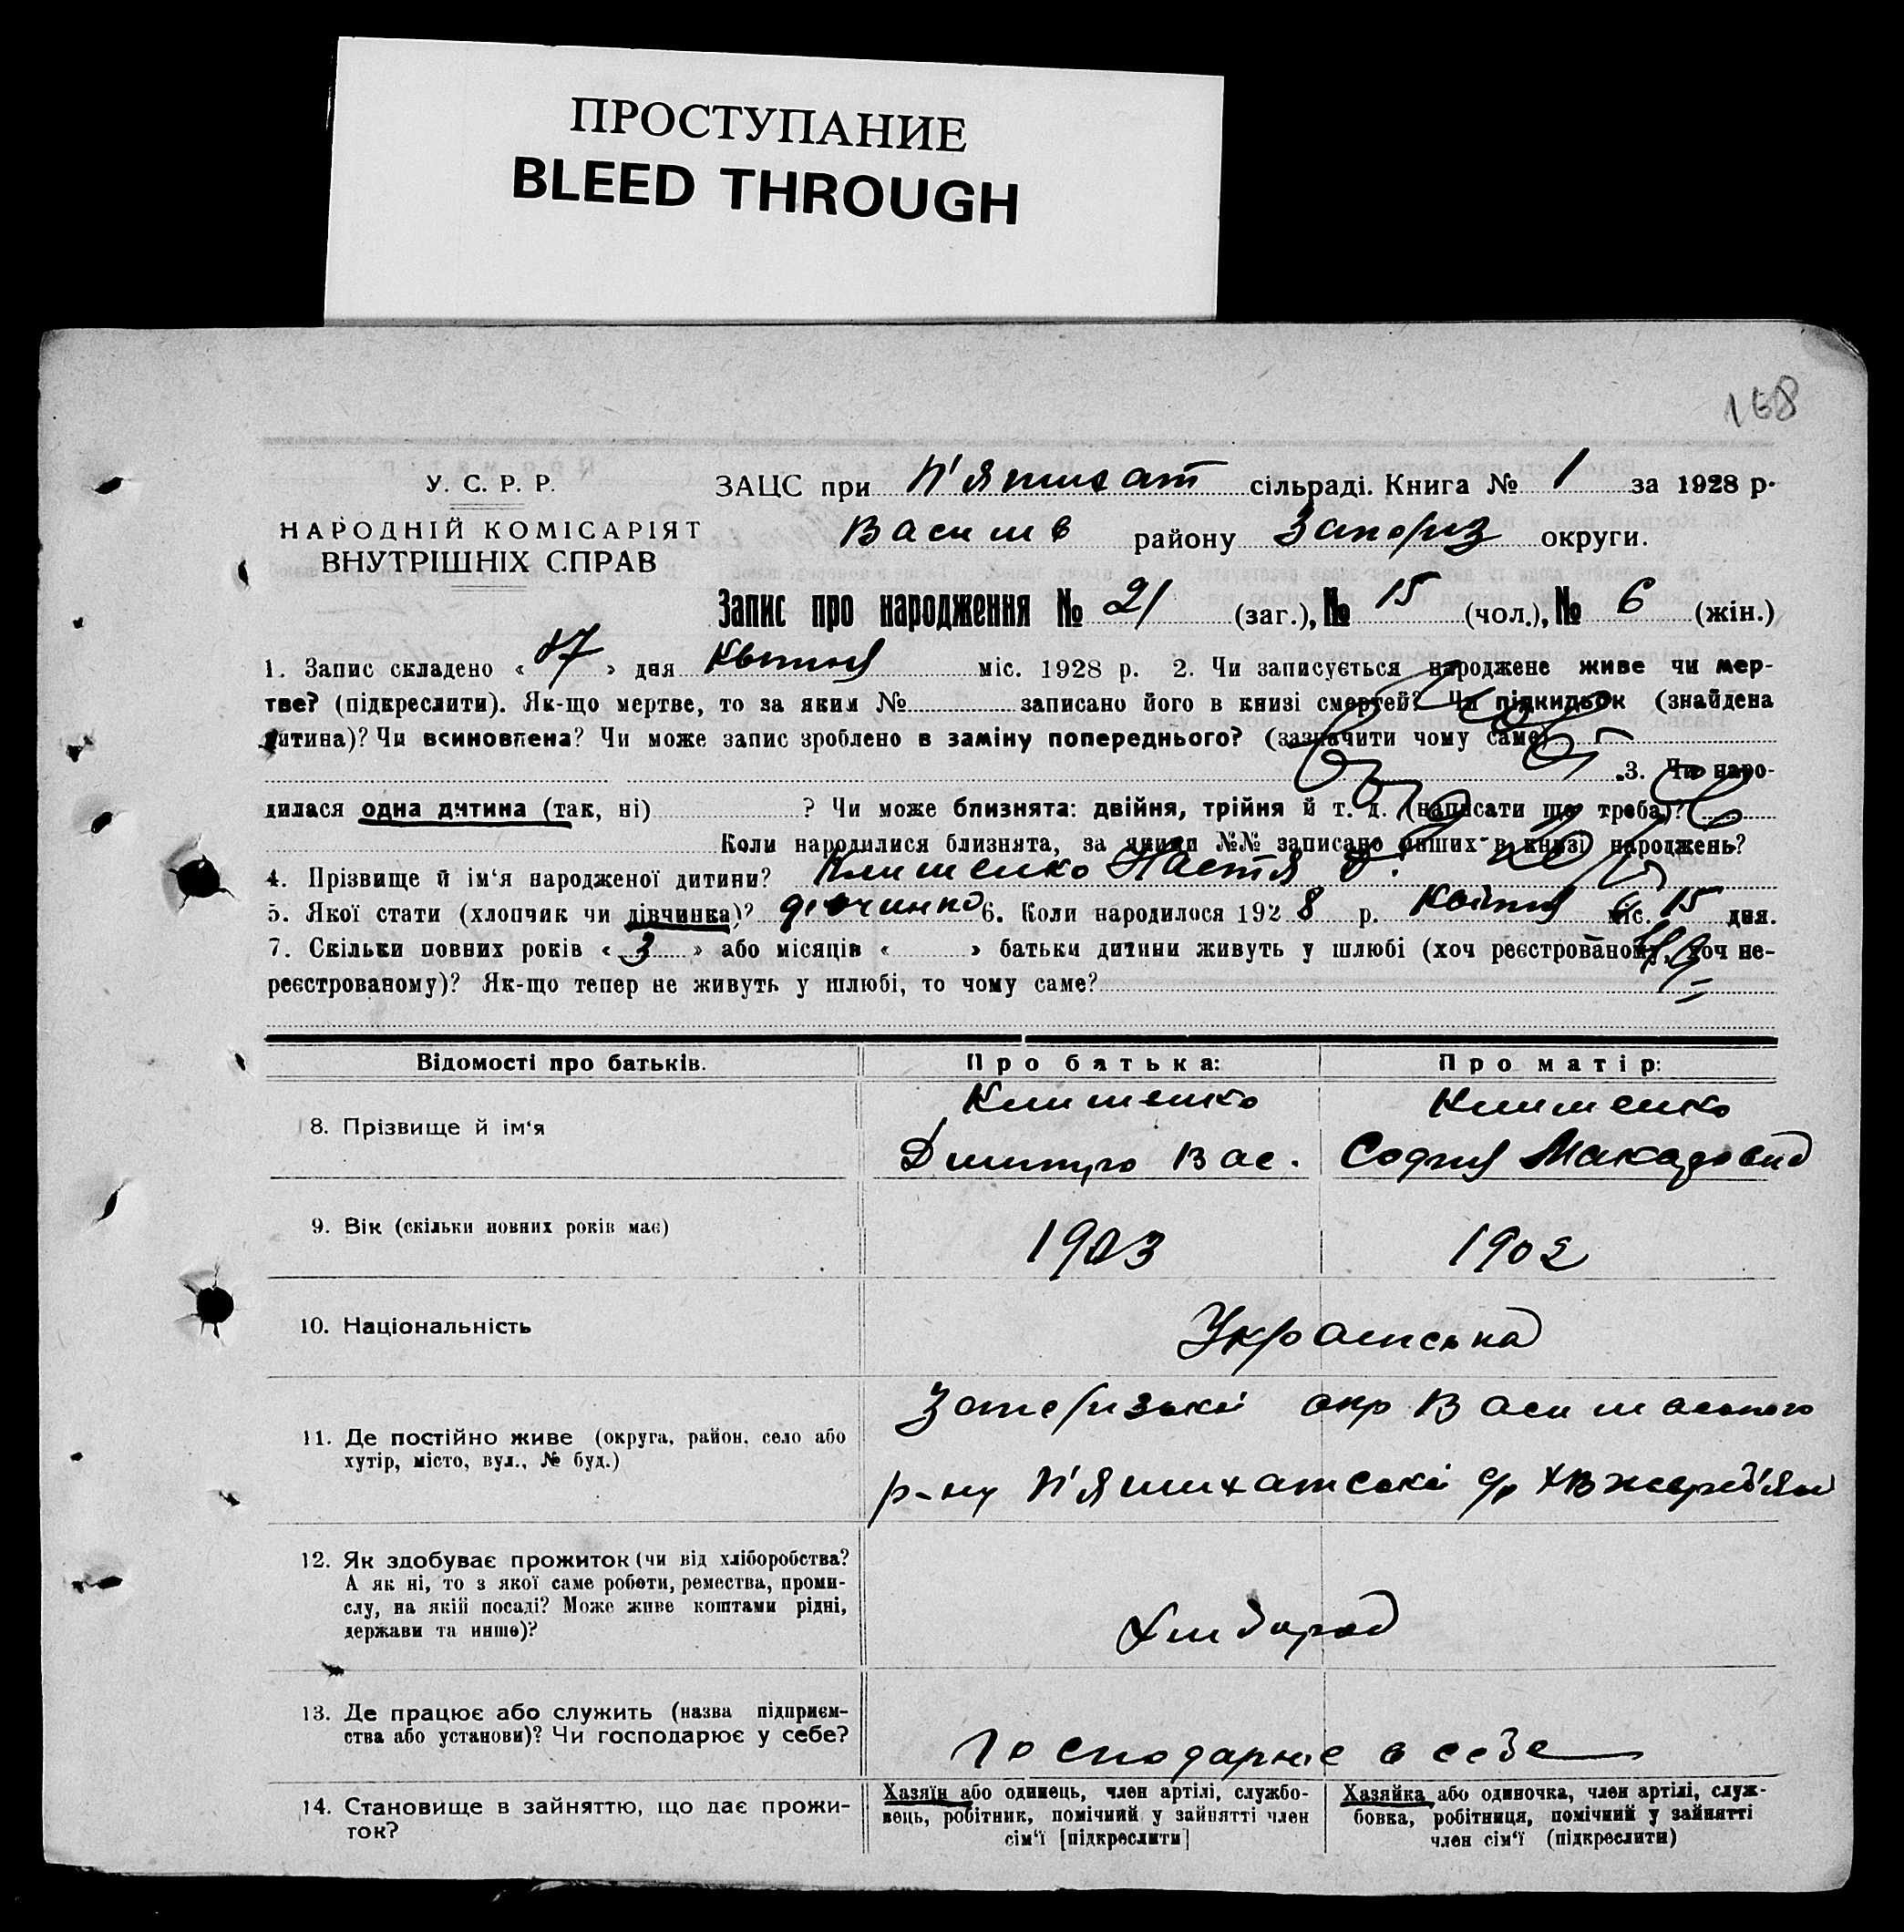 ПРОСТУПАНИЕ
BLEED THROUGH
168
У. С. Р. Р.
НАРОДНІЙ КОМІСАРІЯТ
ВНУТРІШНІХ СПРАВ
ЗАЦС при П'ятихат сільраді. Книга № 1 за 1928 р.
Василів району Запоріз округи.
Запис про народження № 21 (заг.), № 15 (чол.), № 6 (жін.)
1. Запис складено « 17 » дня Квітня міс. 1928 р. 2. Чи записується народжене живе чи мер-
тве? (підкреслити). Як-що мертве, то за яким № записано його в книзі смертей? Чи підкидьок (знайдена
дитина)? Чи всиновлена? Чи може запис зроблено в заміну попереднього? (зазначити чому саме)
3. Чи наро-
дилася одна дитина (так, ні) ? Чи може близнята: двійня, трійня й т. д. (написати що треба)?
Коли народилися близнята, за якими №№ записано инших в книзі народжень?
4. Прізвище й ім'я народженої дитини? Клименко Настя Д.
5. Якої стати (хлопчик чи дівчинка)? дівчинка 6. Коли народилося 1928 р. Квітня міс. 15 дня.
7. Скільки повних років « 3 » або місяців « » батьки дитини живуть у шлюбі (хоч реєстрованому, хоч не-
реєстрованому)? Як-що тепер не живуть у шлюбі, то чому саме?
Відомості про батьків. Про батька: Про матір:
8. Прізвище й ім'я
Клименко Клименко
Дмитро Вас. Софія Макаровна
9. Вік (скільки повних років має) 1903 1902
10. Національність Українська
11. Де постійно живе (округа, район, село або
хутір, місто, вул., № буд.)
Запорізької окр Василівського
р-ну П'ятихатської с/р
12. Як здобуває прожиток (чи від хліборобства?
А як ні, то з якої саме роботи, ремества, проми-
слу, на якій посаді? Може живе коштами рідні,
держави та инше)?
Хлібороб
13. Де працює або служить (назва підприєм-
ства або установи)? Чи господарює у себе?
Господарює в себе
14. Становище в зайняттю, що дає прожи-
ток?
Хазяїн або одинець, член артілі, службо-
вець, робітник, помічний у зайнятті член
сім'ї [підкреслити]
Хазяйка або одиночка, член артілі, служ-
бовка, робітниця, помічний у зайнятті
член сім'ї (підкреслити)